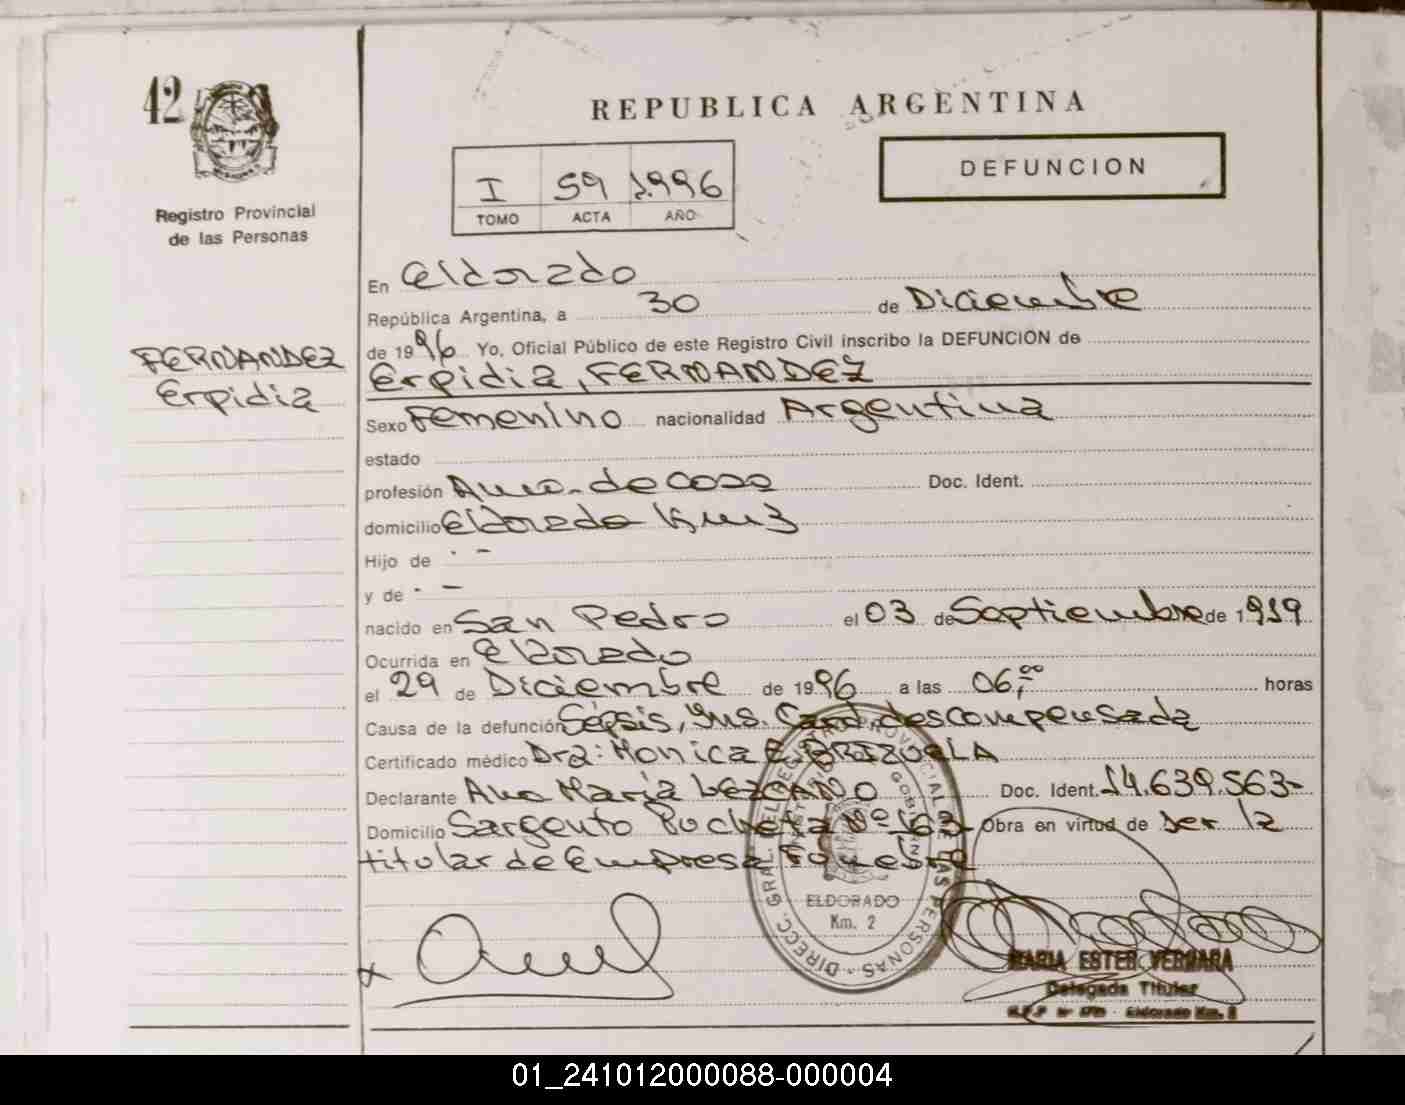 42
Registro Provincial
de las Personas
FERNANDEZ
Erpidia
REPUBLICA ARGENTINA
DEFUNCION
I 59 1.996
TOMO ACTA AÑO
En Eldorado
República Argentina, a 30 de Diciembre
de 1996 Yo, Oficial Público de este Registro Civil inscribo la DEFUNCION de
Erpidia, FERNANDEZ
Sexo Femenino nacionalidad Argentina
estado
profesión Ama de casa Doc. Ident.
domicilio Eldorado Km 3
Hijo de - -
y de - -
nacido en San Pedro el 03 de Septiembre de 1919
Ocurrida en Eldorado
el 29 de Diciembre de 1996 a las 06,00 horas
Causa de la defunción Sepsis, Ins. Card. descompensada
Certificado médico Dra: Monica E. BRIZUELA
Declarante Ana Maria LEZCANO Doc. Ident. 14.639.563-
Domicilio Sargento Pucheta Nº 163 Obra en virtud de ser la
titular de Empresa Funebre
DIRECC. GRAL. DEL REGISTRO PROVINCIAL DE LAS PERSONAS
MINISTERIO GOBIERNO
ELDORADO
Km. 2
MARIA ESTER VERGARA
Delegada Titular
Eldorado Km. 2
01_241012000088-000004